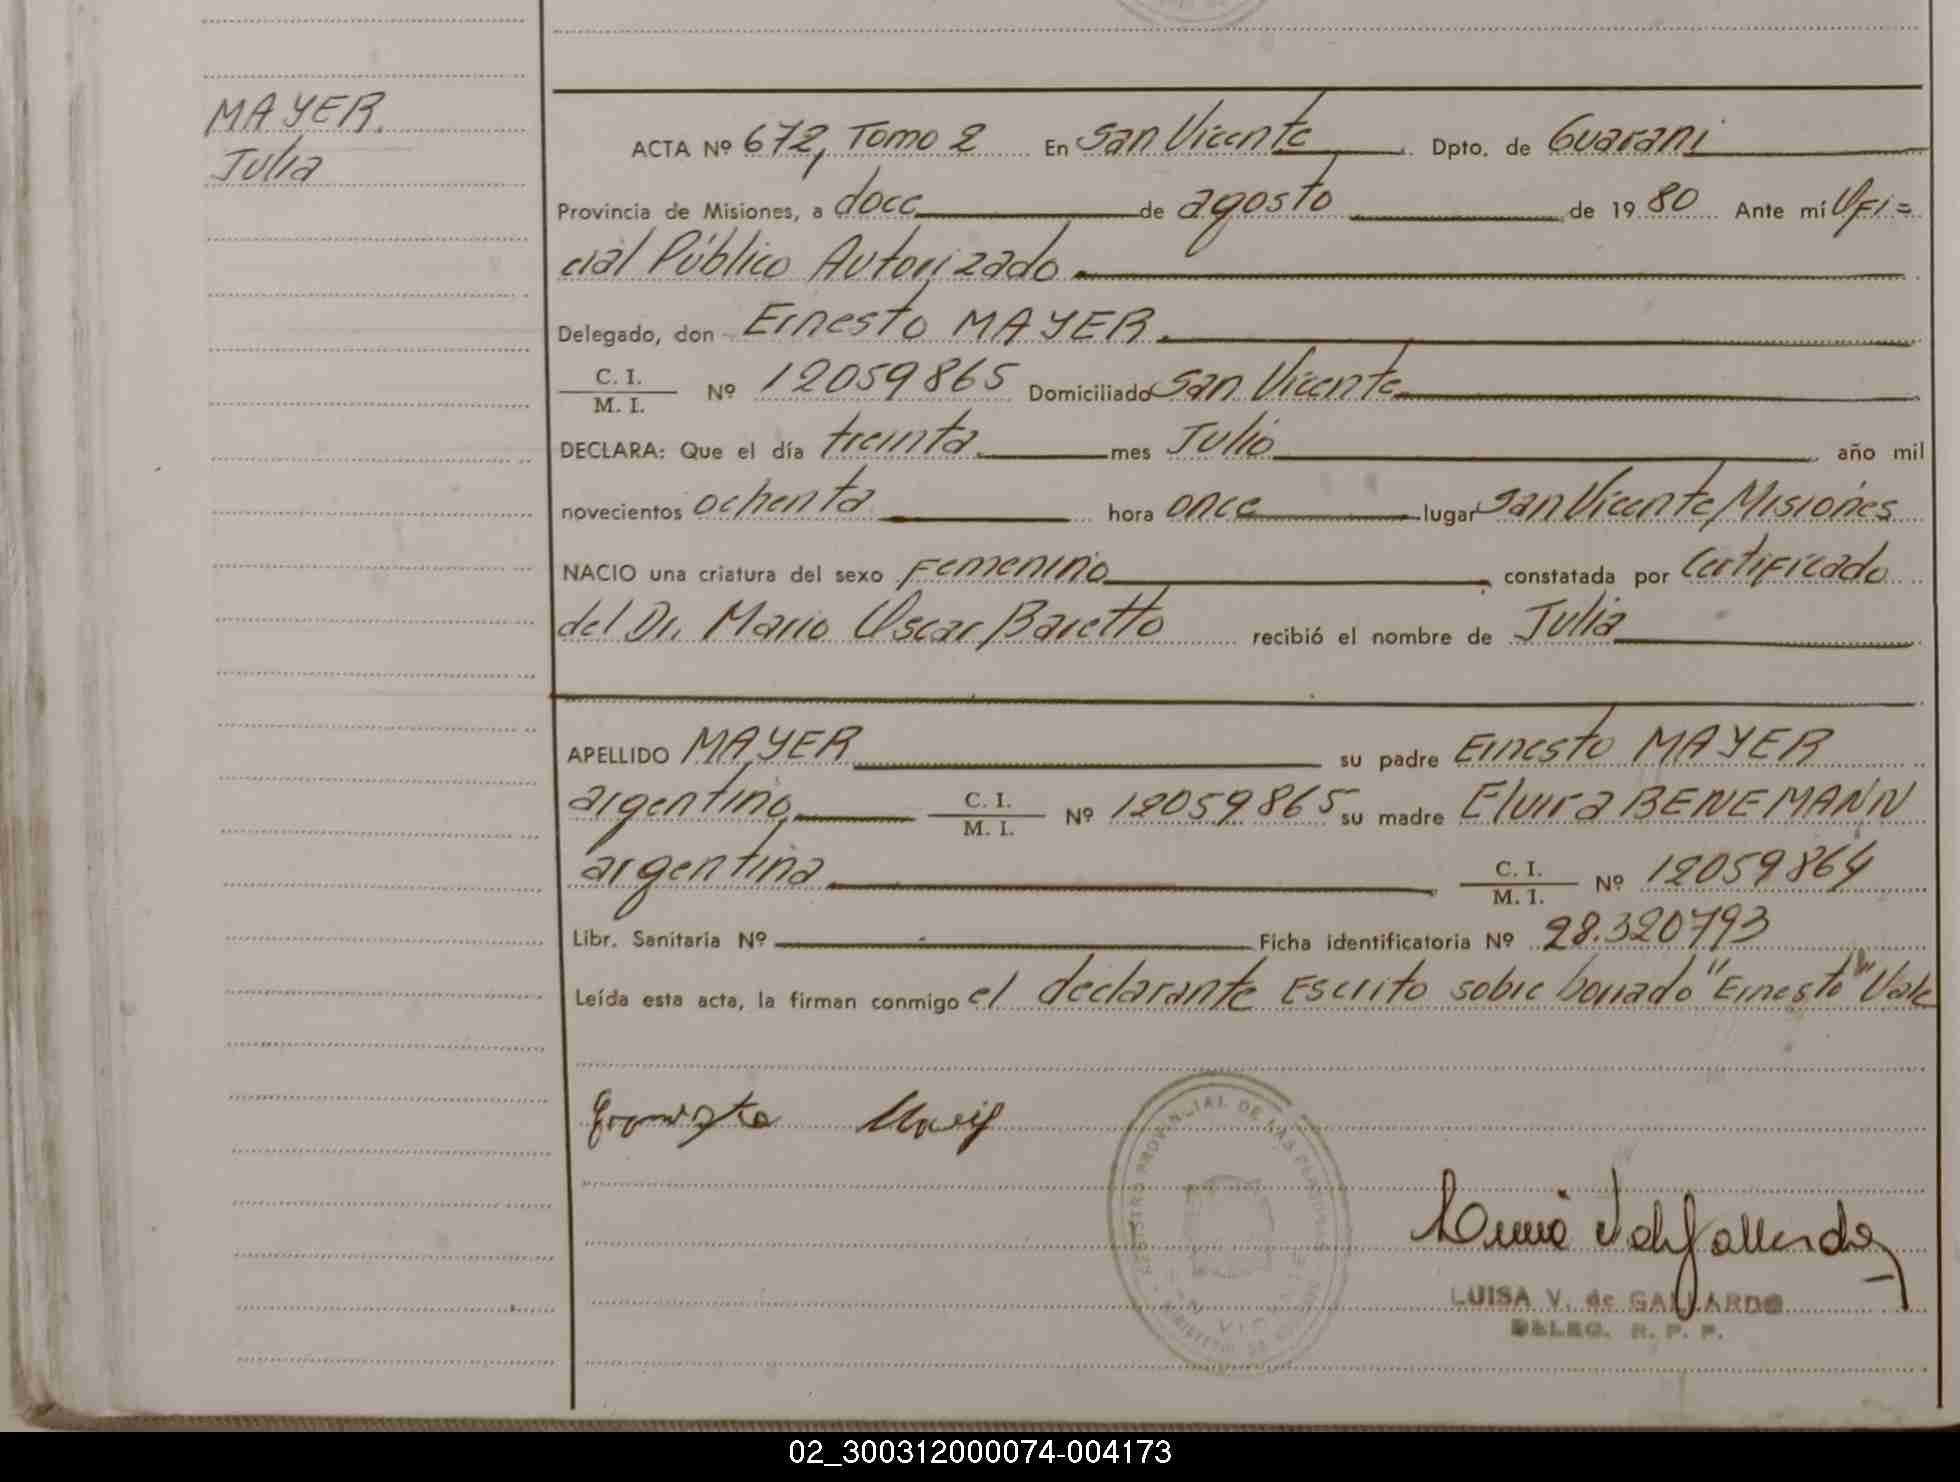 MAYER.
Julia
ACTA Nº 672, Tomo 2 En San Vicente Dpto. de Guarani
Provincia de Misiones, a doce de agosto de 1980 Ante mí Ofi=
cial Público Autorizado
Delegado, don Ernesto MAYER.
C. I.
M. I. Nº 12059865 Domiciliado San Vicente
DECLARA: Que el día treinta mes Julio año mil
novecientos ochenta hora once lugar San Vicente Misiones
NACIO una criatura del sexo Femenino constatada por Certificado
del Dr. Mario Oscar Baretto recibió el nombre de Julia
APELLIDO MAYER su padre Ernesto MAYER
argentino C. I.
M. I. Nº 12059865 su madre Elvira BENEMANN
argentina C. I.
M. I. Nº 12059864
Libr. Sanitaria Nº Ficha identificatoria Nº 28.320793
Leída esta acta, la firman conmigo el declarante Escrito sobre borrado "Ernesto" Vale
REGISTRO PROVINCIAL DE LAS PERSONAS
LUISA V. de GALLARDO
DELEG. R. P. P.
02_300312000074-004173